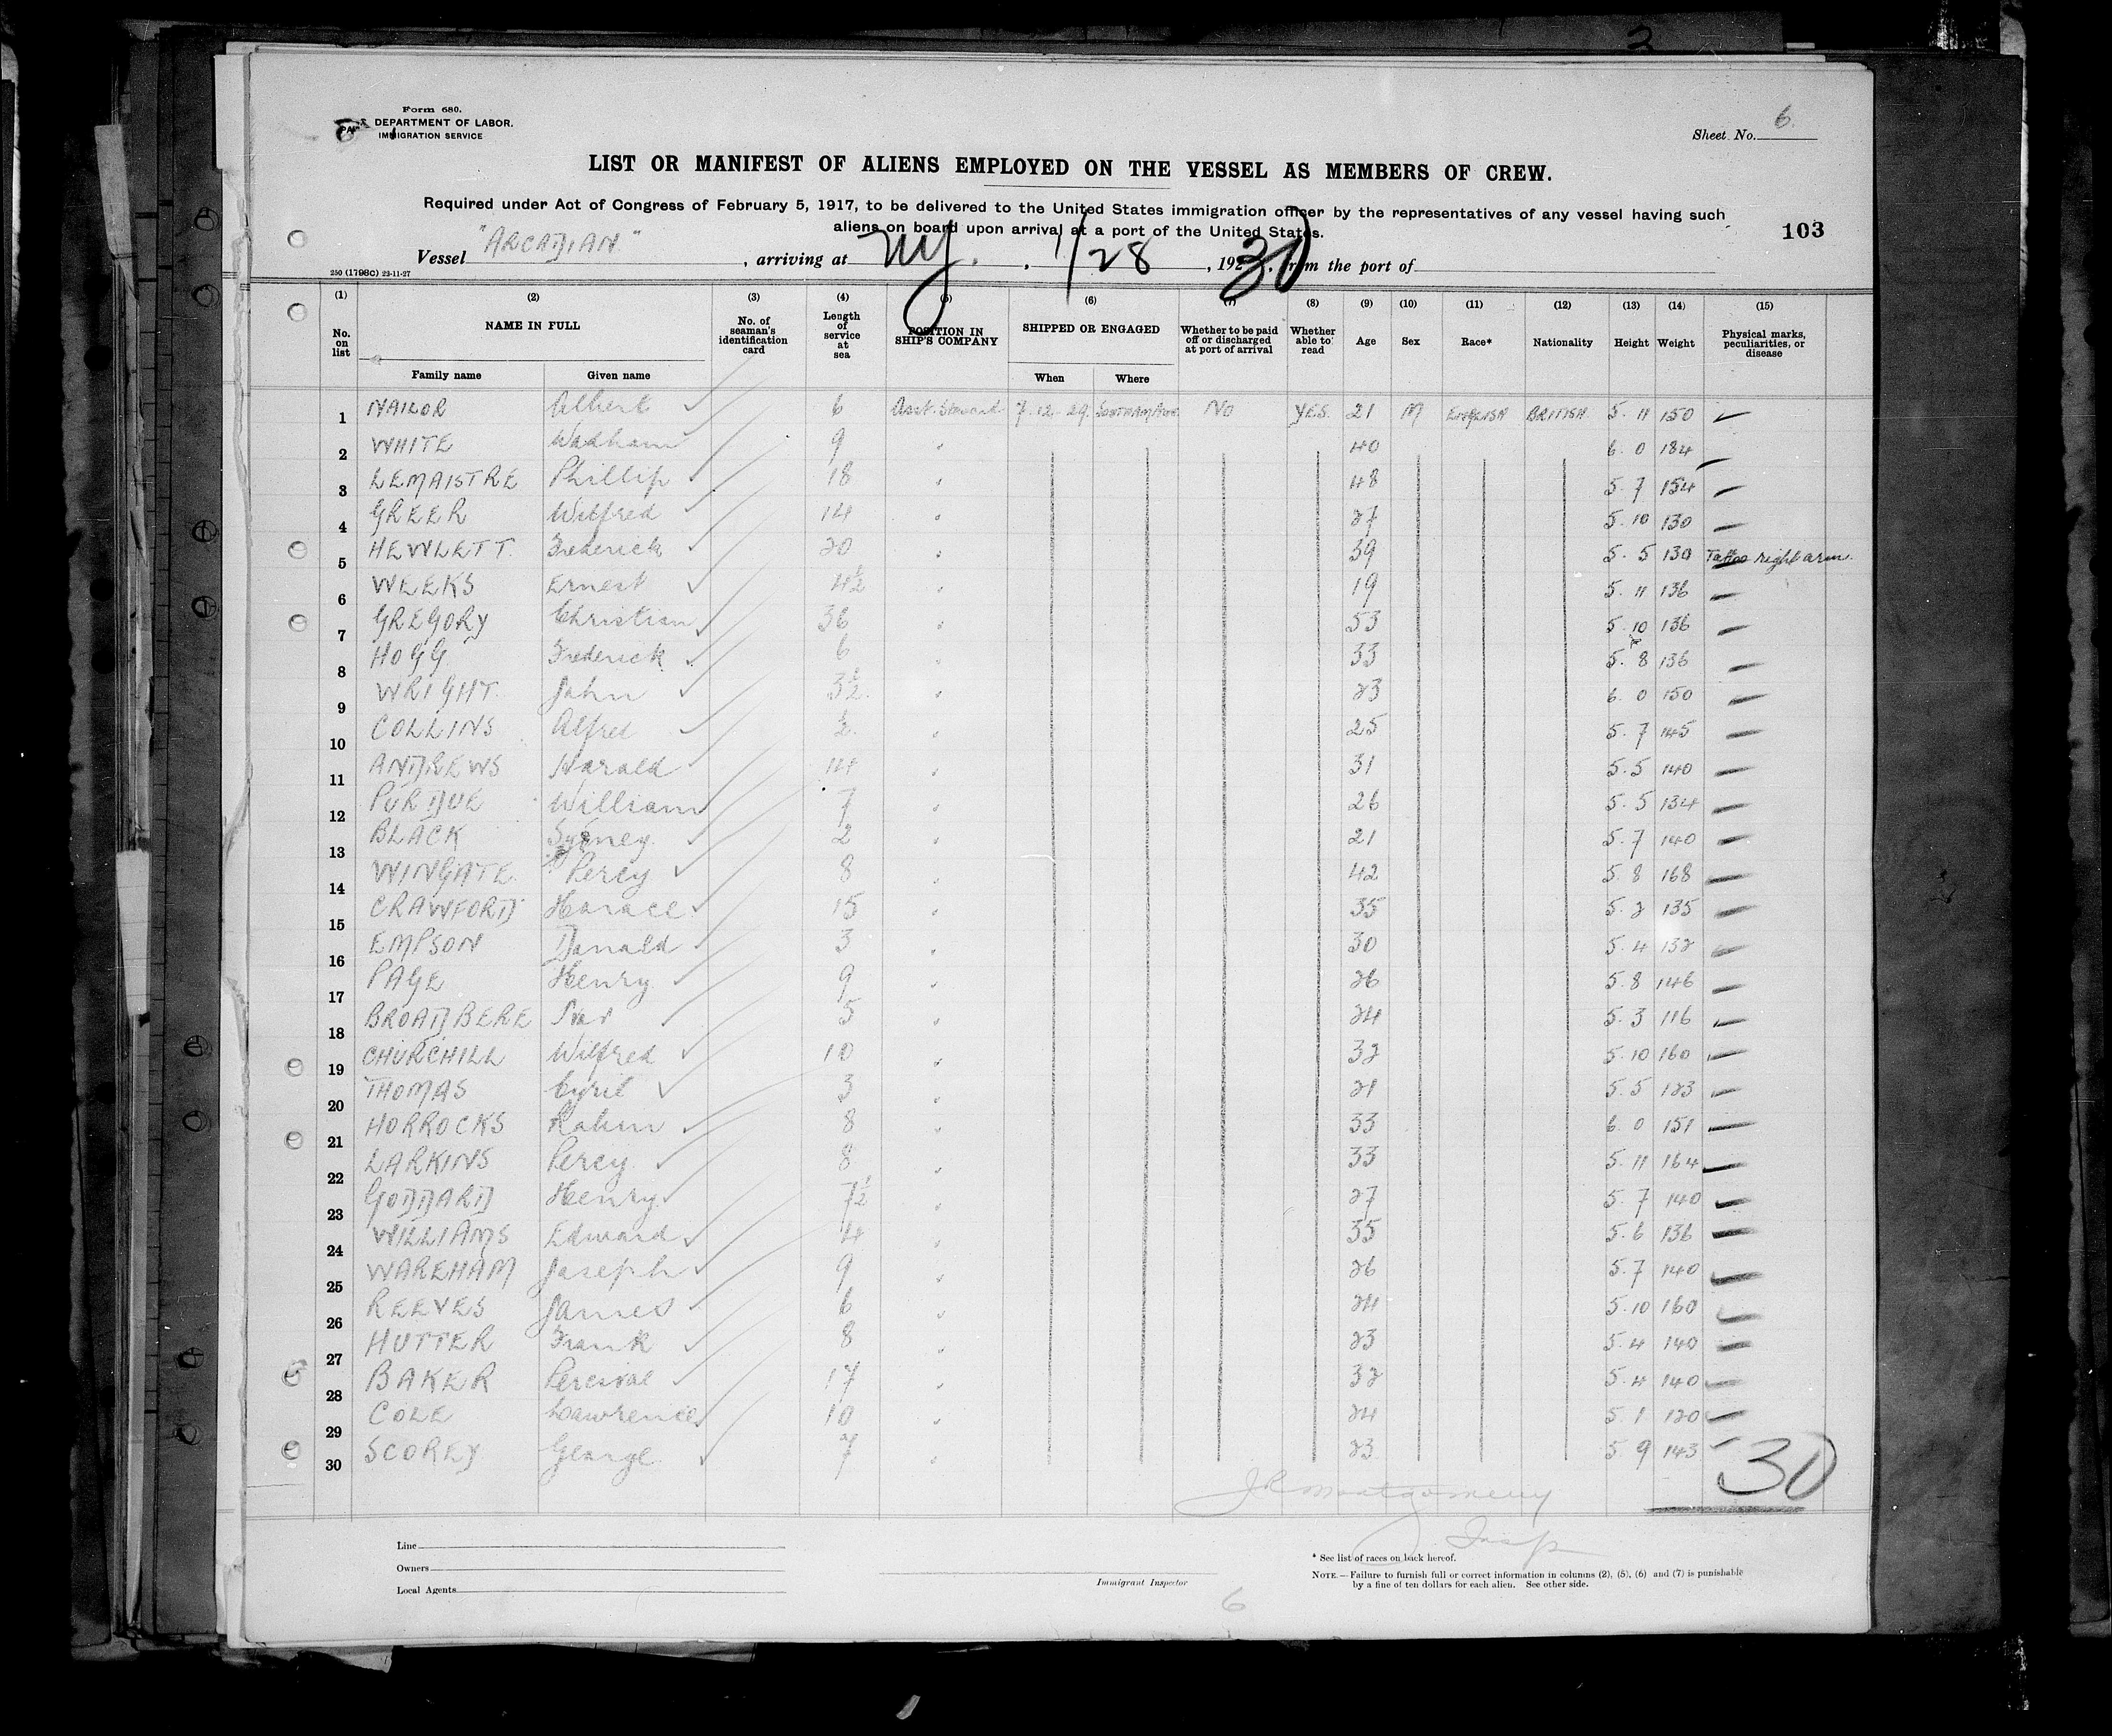 Form 680.
DEPARTMENT OF LABOR.
IMMIGRATION SERVICE
Sheet No. 6.
LIST OR MANIFEST OF ALIENS EMPLOYED ON THE VESSEL AS MEMBERS OF CREW.
Required under Act of Congress of February 5, 1917, to be delivered to the United States immigration officer by the representatives of any vessel having such
aliens on board upon arrival at a port of the United States.
103
Vessel "ARCADIAN", arriving at NY. 1/28, 1930, from the port of
250 (1798c) 23-11-27
(1) (2) (3) (4) (5) (6) (7) (8) (9) (10) (11) (12) (13) (14) (15)
No. on list NAME IN FULL No. of seaman's identification card Length of service at sea POSITION IN SHIP'S COMPANY SHIPPED OR ENGAGED Whether to be paid off or discharged at port of arrival Whether able to read Age Sex Race* Nationality Height Weight Physical marks, peculiarities, or disease
Family name Given name When Where
1 NAILOR Albert 6 Asst. Steward 7.12.29. NO YES. 21 M ENGLISH BRITISH. 5.11 150
2 WHITE Wadham 9 " 40 6.0 184
3 LEMAISTRE Phillip 18 " 48 5.7 154
4 GREER Wilfred 14 " 27 5.10 130
5 HEWLETT. Frederick 20 " 39 5.5 130 Tattoo right arm.
6 WEEKS Ernest 4½ " 19 5.11 136
7 GREGORY Christian 36 " 53 5.10 136
8 HOGG Frederick 6 " 33 5.8 136
9 WRIGHT. John 3½ " 23 6.0 150
10 COLLINS Alfred " 25 5.7 145
11 ANDREWS Harold 14 31 5.5 140
12 PURDUE William 7 " 26 5.5 134
13 BLACK Sydney 2 " 21 5.7 140
14 WINGATE. Percy 8 " 42 5.8 168
15 CRAWFORD Horace 15 " 35 5.2 135
16 EMPSON Donald 3 " 30 5.4 132
17 PAGE Henry 9 " 26 5.8 146
18 BROADBERE Ivor 5 " 24 5.3 116
19 CHURCHILL Wilfred 10 " 32 5.10 160
20 THOMAS Cyril 3 " 21 5.5 123
21 HORROCKS 8 " 33 6.0 151
22 LARKINS Percy 8 " 33 5.11 164
23 GODDARD Henry 7½ " 27 5.7 140
24 WILLIAMS Edward 4 " 35 5.6 136
25 WAREHAM Joseph 9 " 26 5.7 140
26 REEVES James 6 " 24 5.10 160
27 HUTTER Frank 8 " 23 5.4 140
28 BAKER Percival 17 " 32 5.4 140
29 COLE Lawrence 10 " 24 5.1 120
30 SCOREY George 7 " 23 5.9 143
30
JR Montgomery
Insp
Line
Owners
Local Agents
Immigrant Inspector
* See list of races on back hereof.
NOTE.—Failure to furnish full or correct information in columns (2), (5), (6) and (7) is punishable
by a fine of ten dollars for each alien. See other side.
6